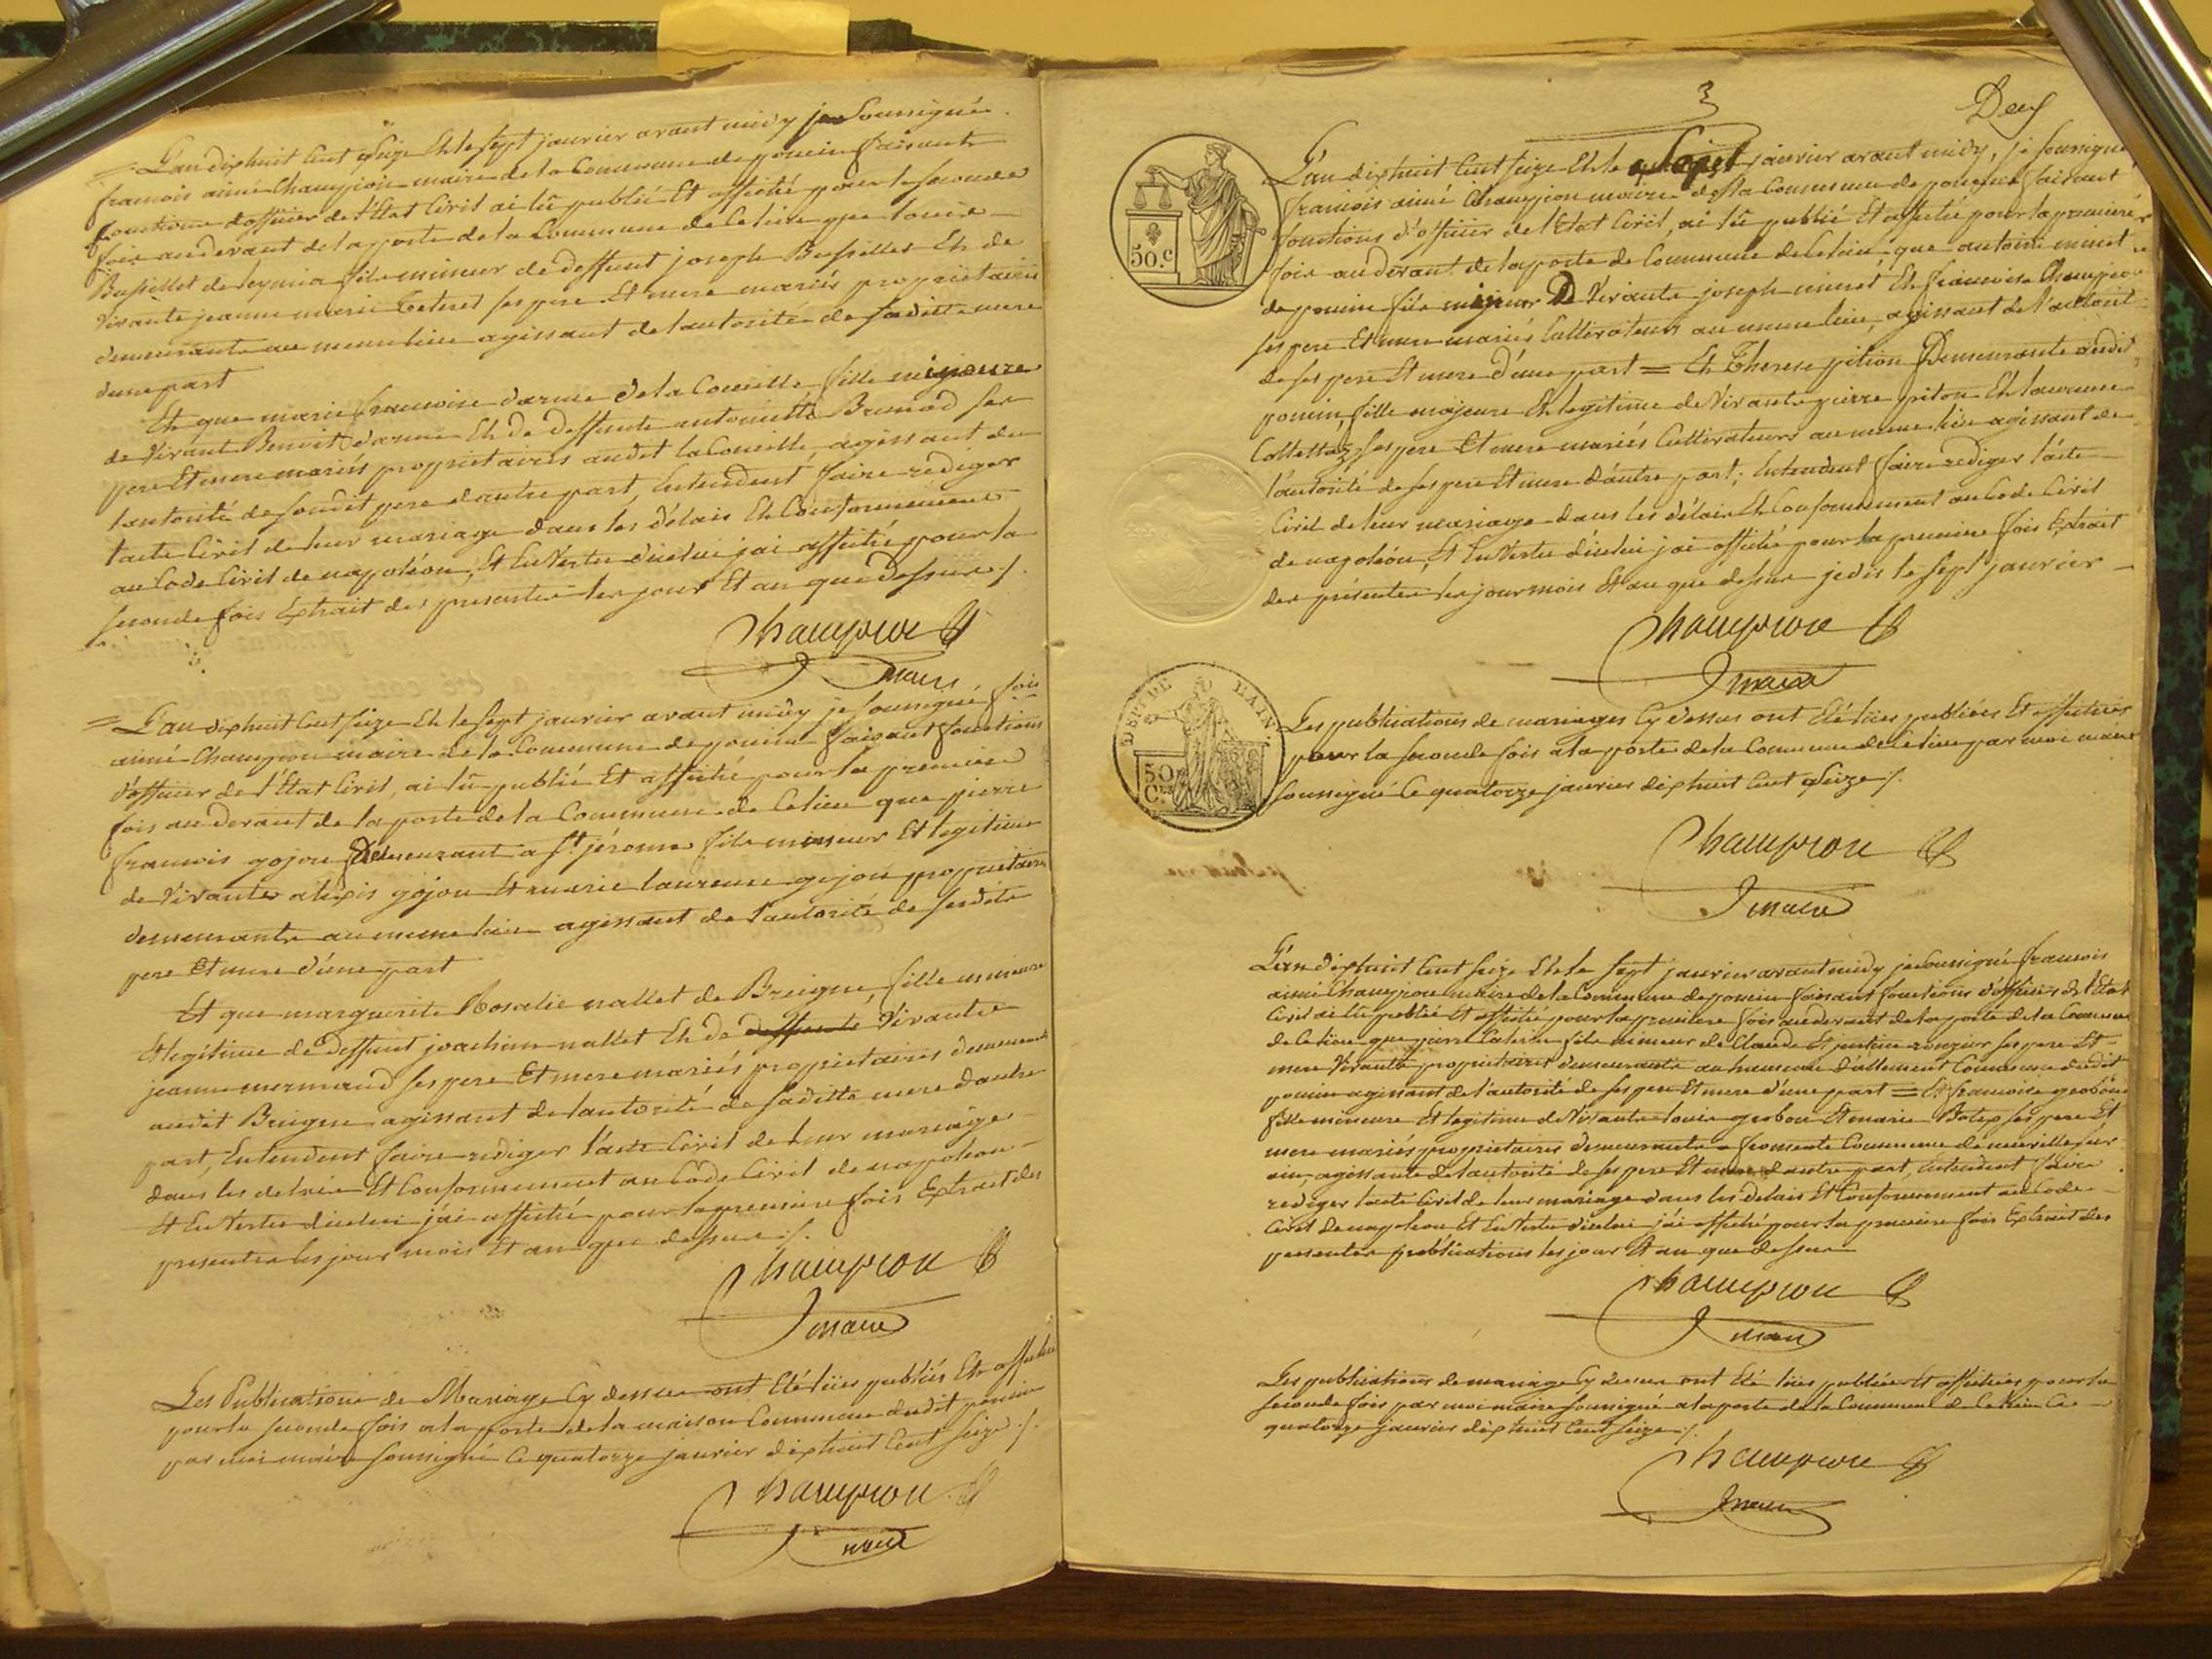 L'an dixhuit Cent Seize Et le sept janvier avant midy je Soussigné
francois aimé Champion maire de la Commune de poncin faisante
fonctions d'officier de l'Etat Civil ai lû publié Et affiché pour la seconde
fois au devant de la porte de la Commune de Ce lieu que Louis
Bussillet de Leymia fils mineur de deffunt joseph Bussillet Et de
vivante jeanne marie ses pere Et mere mariés proprietaires
demeurants au meme lieu agissant de l'autorité de sa ditte mere
d'une part
Et que marie francoise darme de la Coueille fille majeure
de vivant Benoit darme Et de deffunte antoinette Brunod ses
pere Et mere mariés proprietaires audit la Coueille, agissant de
l'autorité de son dit pere d'autre part, Entendent faire rediger
l'acte Civil de leur mariage dans les délais Et Conformement
au Code Civil de napoléon, Et En Vertu d'icelui j'ai affiché pour la
seconde fois Extrait des presentes les jour Et an que dessus ./.
Champion
maire
L'an dixhuit Cent Seize Et le sept janvier avant midy je soussigné fois
aimé Champion maire de la Commune de poncin faisant fonctions
d'officier de l'Etat Civil, ai lû publié Et affiché pour la premiere
fois au devant de la porte de la Commune de Ce lieu que pierre
francois gojon Demeurant a St jérome fils mineur Et legitime
de Vivants alexis gojon Et marie laurence gojon proprietaires
demeurants au meme lieu agissant de l'autorité de ses dits
pere Et mere d'une part
Et que marguerite Rosalie nallet de Breigne, fille mineure
Et legitime de deffunt joachim nallet Et de deffunte Vivante
jeanne mermand ses pere Et mere mariés proprietaires demeurant
audit Breigne agissant de l'autorité de sa ditte mere d'autre
part, Entendent faire rediger l'acte Civil de leur mariage
dans les delais Et Conformement au Code Civil de napoleon
Et En Vertu d'icelui j'ai affiché pour la premiere fois Extrait des
presentes les jour mois Et an que dessus ./.
Champion
maire
Les Publications de Mariage Cy dessus ont Eté lües publiés Et affichés
pour la seconde fois a la porte de la maison Commune dudit poncin
par moi maire soussigné Ce quatorze janvier dixhuit Cent Seize ./.
Champion
maire
3
Deux
50.c
L'an dixhuit Cent Seize Et le Sept janvier avant midy, je soussigné
francois aimé Champion maire de la Commune de poncin faisant
fonctions d'officier de l'Etat Civil, ai lû publié Et affiché pour la premiere
fois au devant de la porte de Commune de Ce lieu que antoine minet
de poncin fils majeur De vivants joseph minet Et francoise Champion
ses pere Et mere mariés Cultivateurs au meme lieu, agissant de l'autorité
de ses pere Et mere d'une part = Et Therese piton Demeurante audit
poncin, fille majeure Et legitime de Vivants pierre piton Et laurence
Collettaz ses pere Et mere mariés Cultivateurs au meme lieu agissant de
l'autorité de ses pere Et mere d'autre part; Entendent faire rediger l'acte
Civil de leur mariage dans les délais Et Conformement au Code Civil
de napoléon, Et En Vertu d'icelui j'ai affiché pour la premiere fois Extrait
des présentes les jour mois Et an que dessus je dis le sept janvier
Champion
maire
DEPT DE L'AIN.
50 C.
Les publications de mariages Cy dessus ont Eté lües publiées Et affichées
pour la seconde fois a la porte de la Commune de Ce lieu par moi maire
soussigné Ce quatorze janvier dixhuit Cent Seize ./.
Champion
maire
L'an dixhuit Cent Seize Et le sept janvier avant midy je soussigné francois
aimé Champion maire de la Commune de poncin faisant fonctions d'officier de l'Etat
Civil ai lû publié Et affiché pour la premiere fois au devant de la porte de la Commune
de Ce lieu que pierre fils mineur de Claude Et ses pere Et
mere Vivants proprietaires demeurants au hameau d'allement Commune dudit
poncin agissant de l'autorité de ses pere Et mere d'une part = Et francoise grobon
fille mineure Et legitime de Vivants louis grobon Et marie ses pere Et
mere mariés proprietaires demeurants a fromente Commune de neuville sur
ain, agissante de l'autorité de ses pere Et mere d'autre part, Entendent faire
rediger l'acte Civil de leur mariage dans les delais Et Conformement au Code
Civil de napoleon Et En Vertu d'icelui j'ai affiché pour la premiere fois Extrait des
presentes publications les jour Et an que dessus
Champion
maire
Les publications de mariage Cy dessus ont Eté lües publiées Et affichées pour la
seconde fois par moi maire soussigné a la porte de la Commune de Ce lieu Ce
quatorze janvier dixhuit Cent Seize ./.
Champion
maire